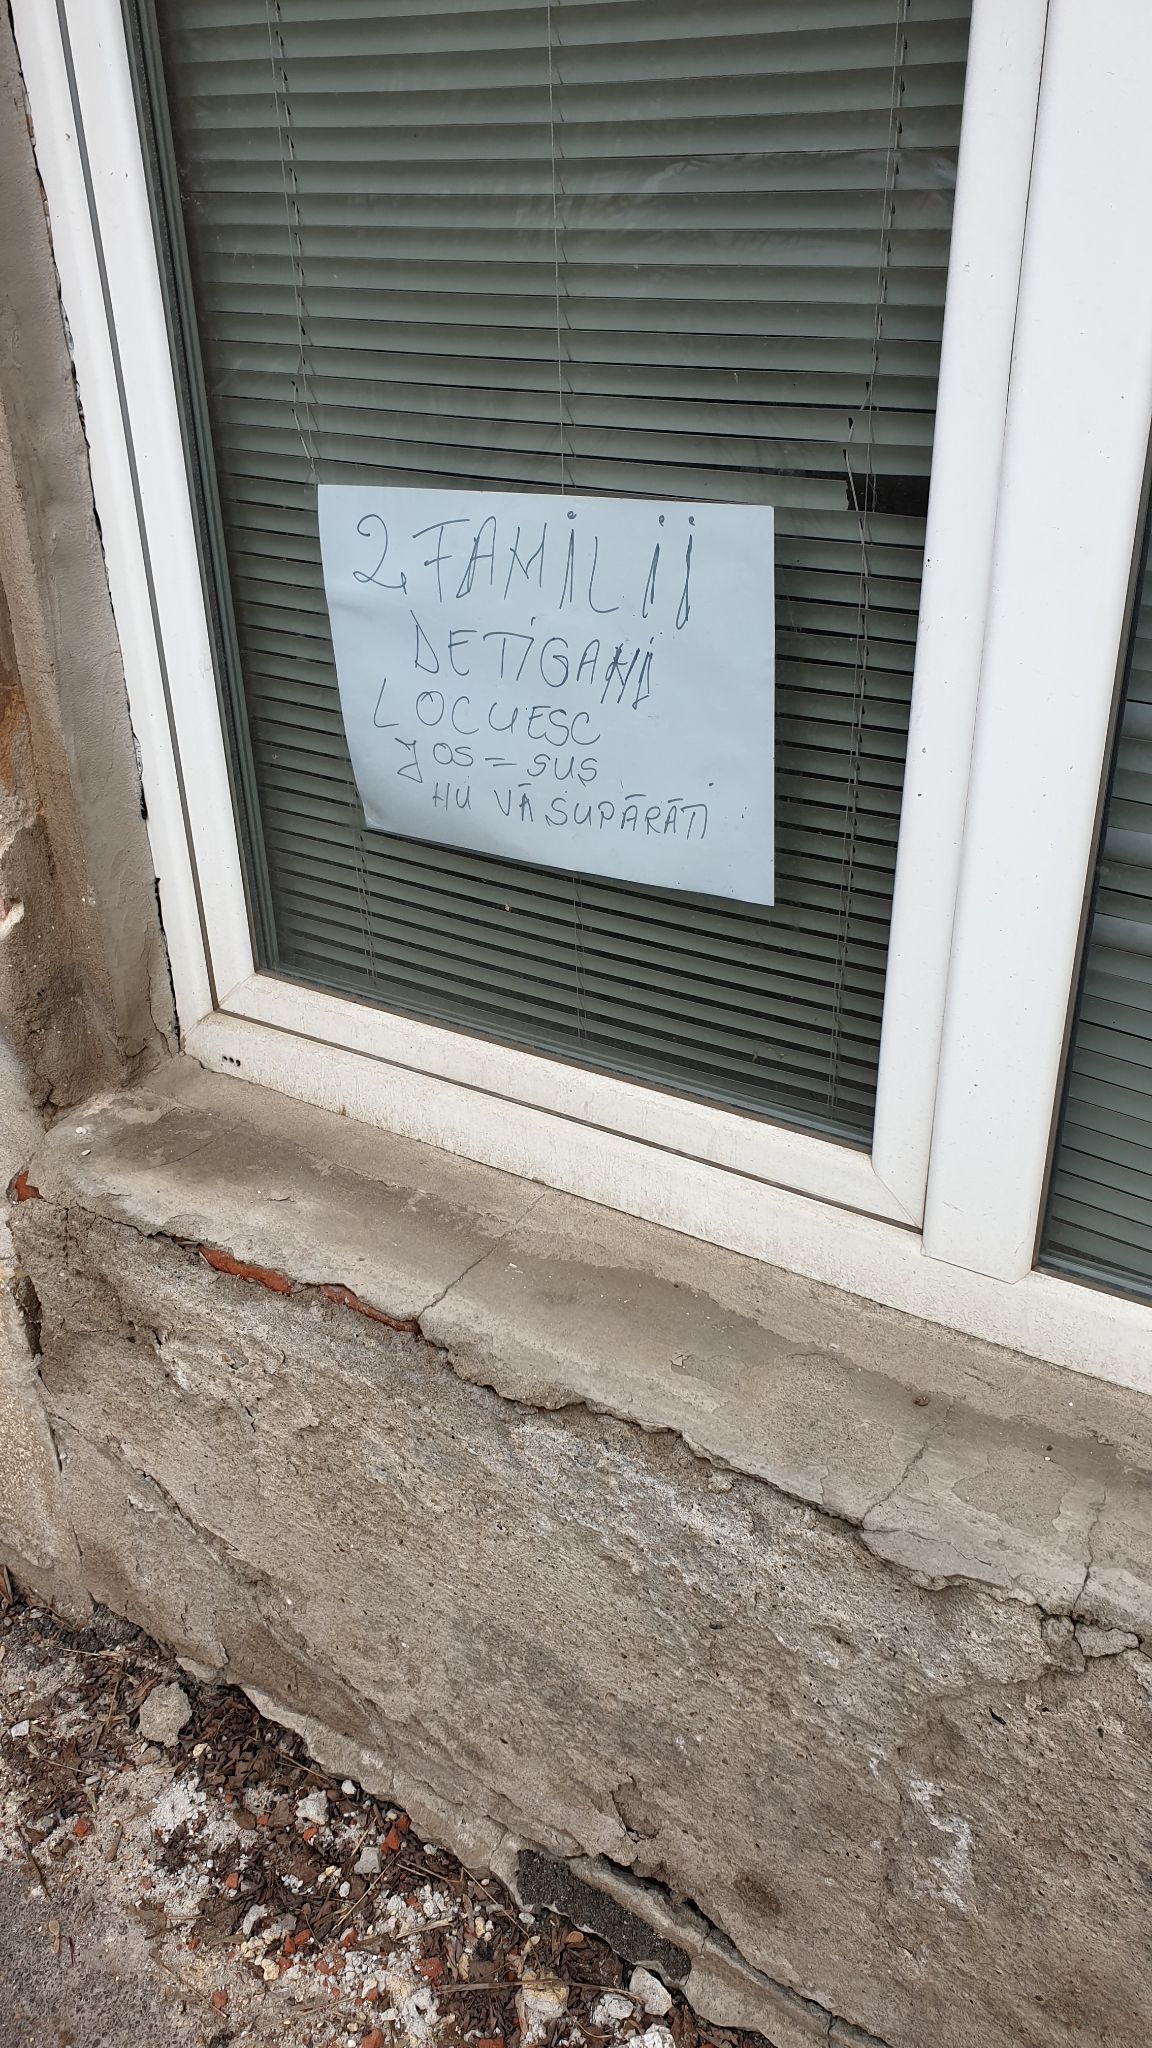 2 FAMILII
DE TIGANI
LOCUESC
JOS = SUS
NU VĂ SUPĂRĂTI